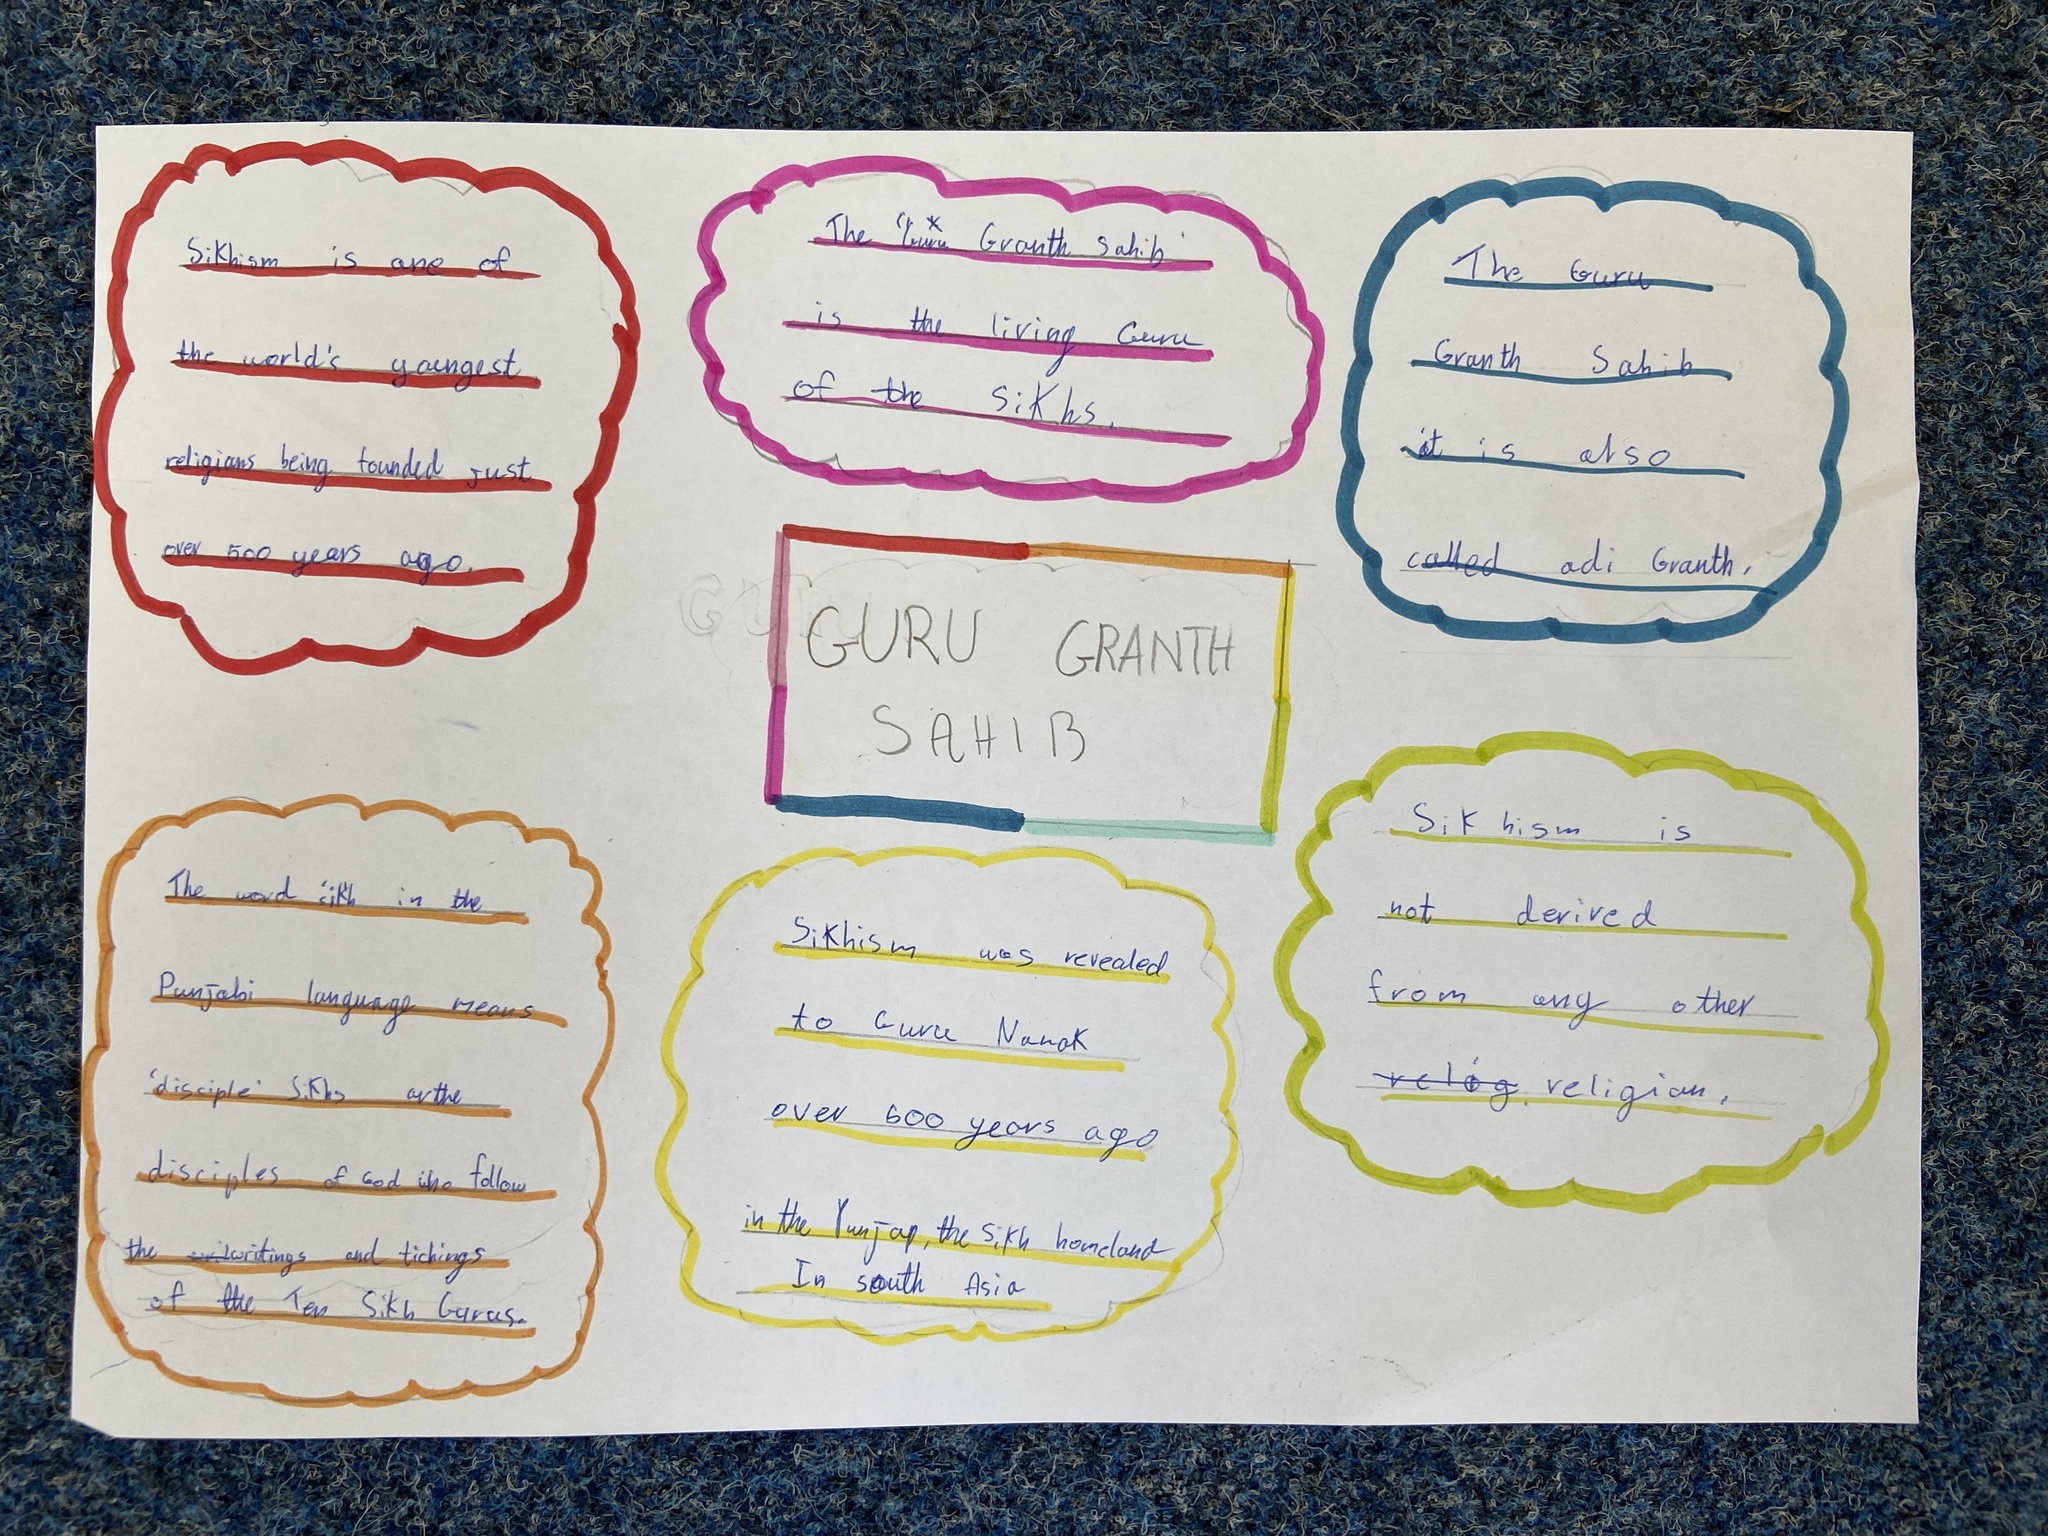 Sikhism is one of
the world's youngest
religians being founded just
over 500 years ago.
The 'Guru Granth Sahib'
is the living Guru
of the Sikhs.
The Guru
Granth Sahib
it is also
called adi Granth.
GURU GRANTH
SAHIB
The word 'sikh' in the
Punjabi language means
'disciple' Sikhs arthe
disciples of God who follow
the writings and tichings
of the Ten Sikh Gurus.
Sikhism was revealed
to Guru Nanak
over 600 years ago
in the Punjap, the Sikh homeland
In south Asia
Sikhism is
not derived
from any other
relig religian.